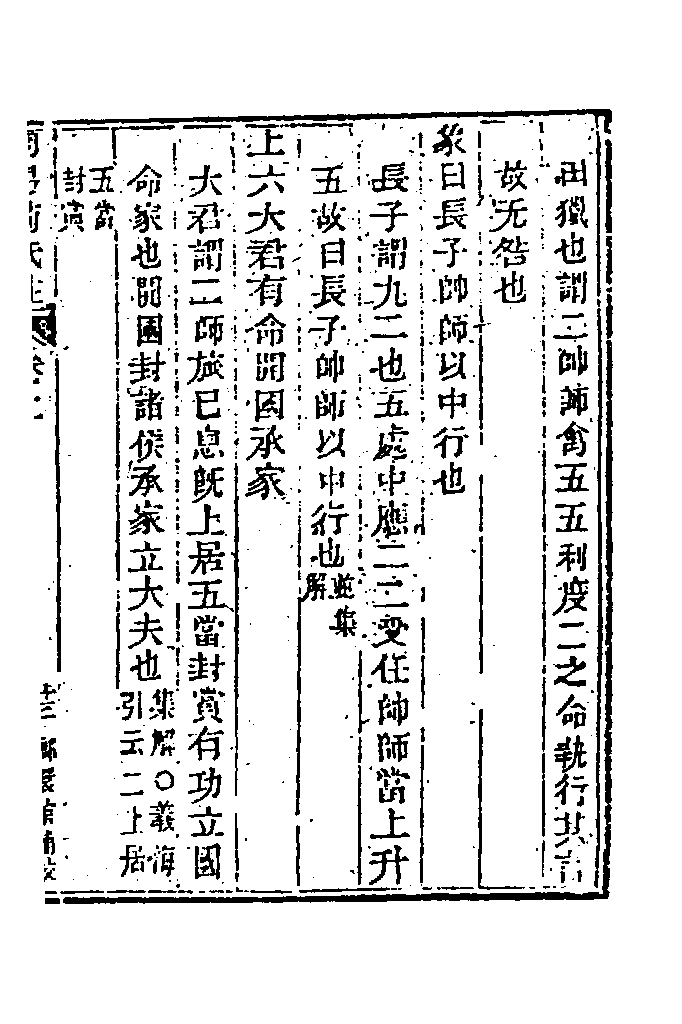 田獵也謂二帥師禽五五利度二之命執行其言
故无咎也
象曰長子帥師以中行也
長子謂九二也五處中應二二受任帥師當上升
五故曰長子帥師以中行也並集解
上六大君有命開國承家
大君謂二師旅已息旣上居五當封賞有功立國
命家也開國封諸侯承家立大夫也集解○義海引云二上居
五當封賞
荀氏注 卷上